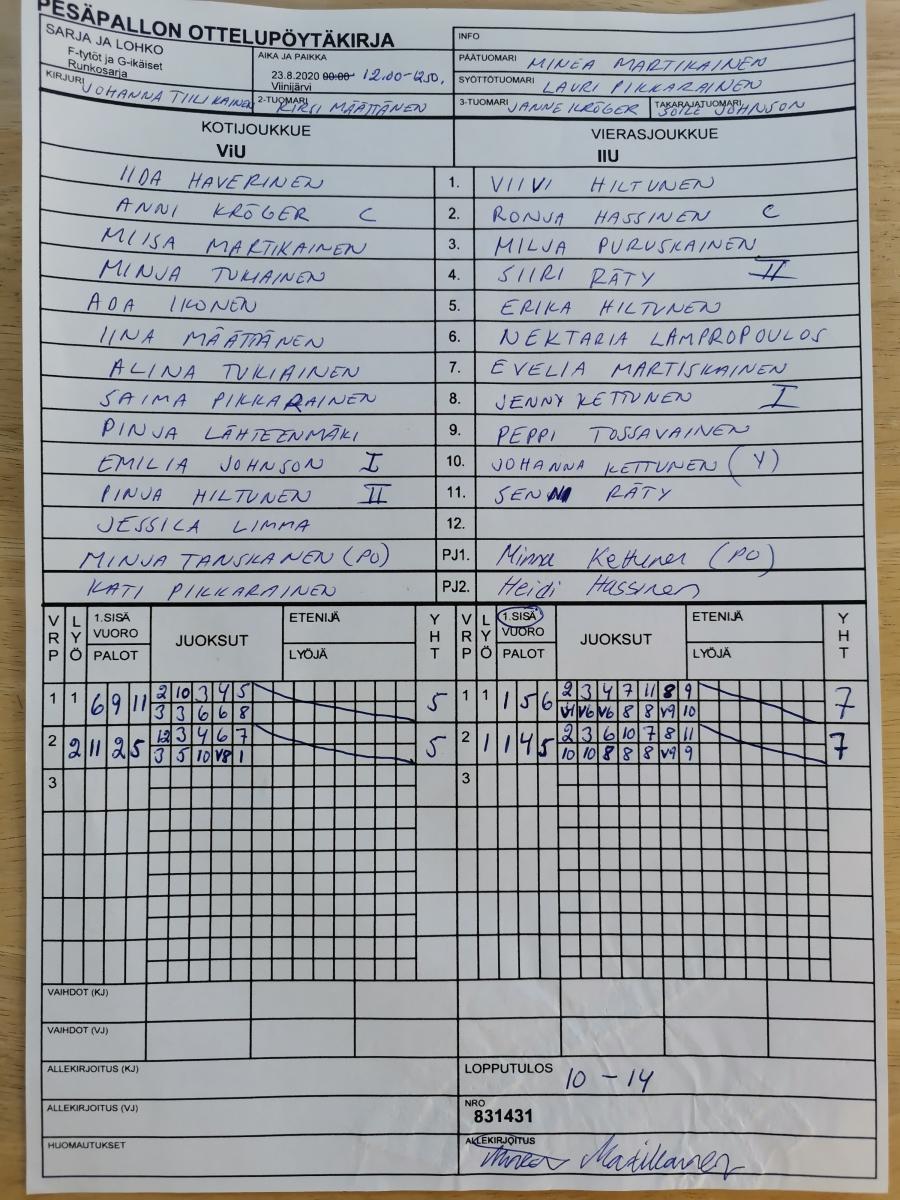 PESÄPALLON OTTELUPÖYTÄKIRJA
SARJA JA LOHKO
F-tytöt ja G-ikäiset
Runkosarja
AIKA JA PAIKKA
23.8.2020 00:00 12.00-12.50.
Viinijärvi
KIRJURI JOHANNA TIILIKAINEN
2-TUOMARI KIRSI MÄÄTTÄNEN
INFO
PÄÄTUOMARI MINEA MARTIKAINEN
SYÖTTÖTUOMARI LAURI PIKKARAINEN
3-TUOMARI JANNE KRÖGER TAKARAJATUOMARI SOILE JOHNSON
KOTIJOUKKUE VIERASJOUKKUE
ViU IIU
IIDA HAVERINEN 1. VIIVI HILTUNEN
ANNI KRÖGER C 2. RONJA HASSINEN C
MIISA MARTIKAINEN 3. MILJA PURUSKAINEN
MINJA TUKIAINEN 4. SIIRI RÄTY II
ADA IKONEN 5. ERIKA HILTUNEN
IINA MÄÄTTÄNEN 6. NEKTARIA LAMPROPOULOS
ALINA TUKIAINEN 7. EVELIA MARTISKAINEN
SAIMA PIKKARAINEN 8. JENNY KETTUNEN I
PINJA LÄHTEENMÄKI 9. PEPPI TOSSAVAINEN
EMILIA JOHNSON I 10. JOHANNA KETTUNEN (Y)
PINJA HILTUNEN II 11. RÄTY
JESSICA LIMMA 12.
MINJA TANSKANEN (PO) PJ1. Minna Kettunen (PO)
KATI PIKKARAINEN PJ2. Heidi Hassinen
VRP LYÖ 1.SISÄ VUORO PALOT JUOKSUT ETENIJÄ LYÖJÄ YHT VRP LYÖ 1.SISÄ VUORO PALOT JUOKSUT ETENIJÄ LYÖJÄ YHT
1 1 6 9 11 2 10 3 4 5 5 1 1 1 5 6 2 3 4 7 11 8 9 7
3 3 6 6 8 V1 V6 V6 8 8 V9 10
2 2 11 2 5 12 3 4 6 7 5 2 1 1 4 5 2 3 6 10 7 8 11 7
3 5 10 V8 1 10 10 8 8 8 V9 9
3 3
VAIHDOT (KJ)
VAIHDOT (VJ)
ALLEKIRJOITUS (KJ)
LOPPUTULOS 10 – 14
ALLEKIRJOITUS (VJ)
NRO
831431
HUOMAUTUKSET
ALLEKIRJOITUS
Minea Martikainen